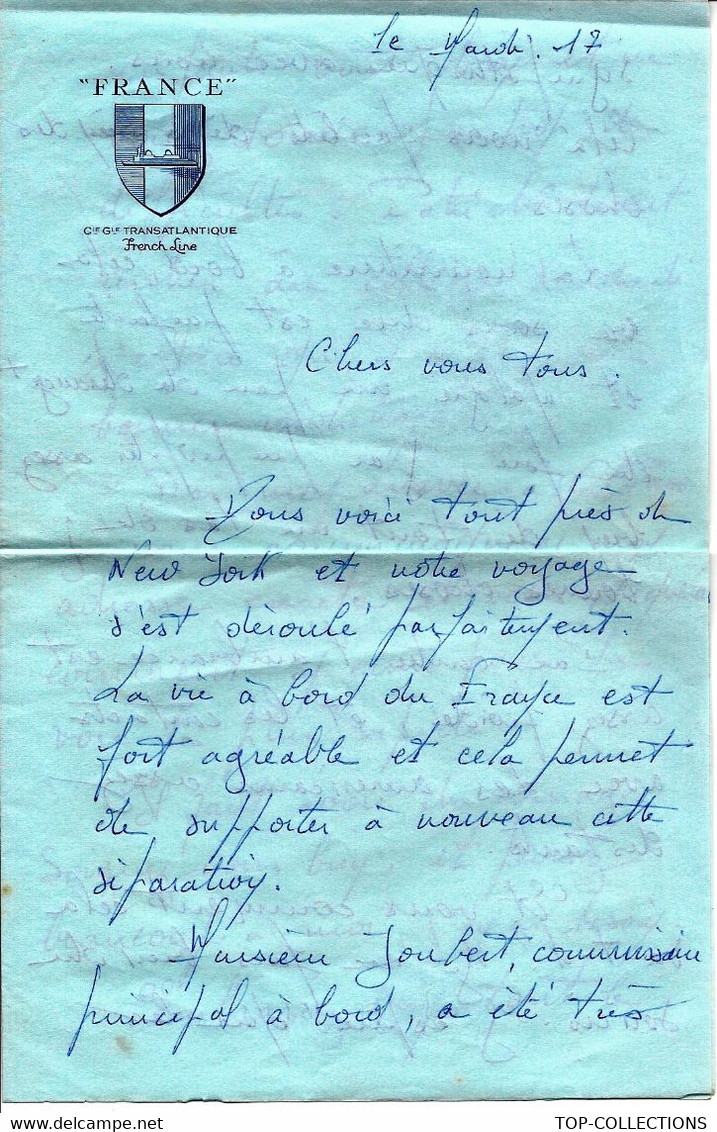 le Mardi. 17
"FRANCE"
Cie Gle TRANSATLANTIQUE
French Line
Chers vous tous.
Nous voici tout près de
New York et notre voyage
s'est déroulé parfaitement.
La vie à bord du France est
fort agréable et cela permet
de supporter à nouveau cette
séparation.
Monsieur Joubert, commissaire
principal à bord, a été très
TOP-COLLECTIONS